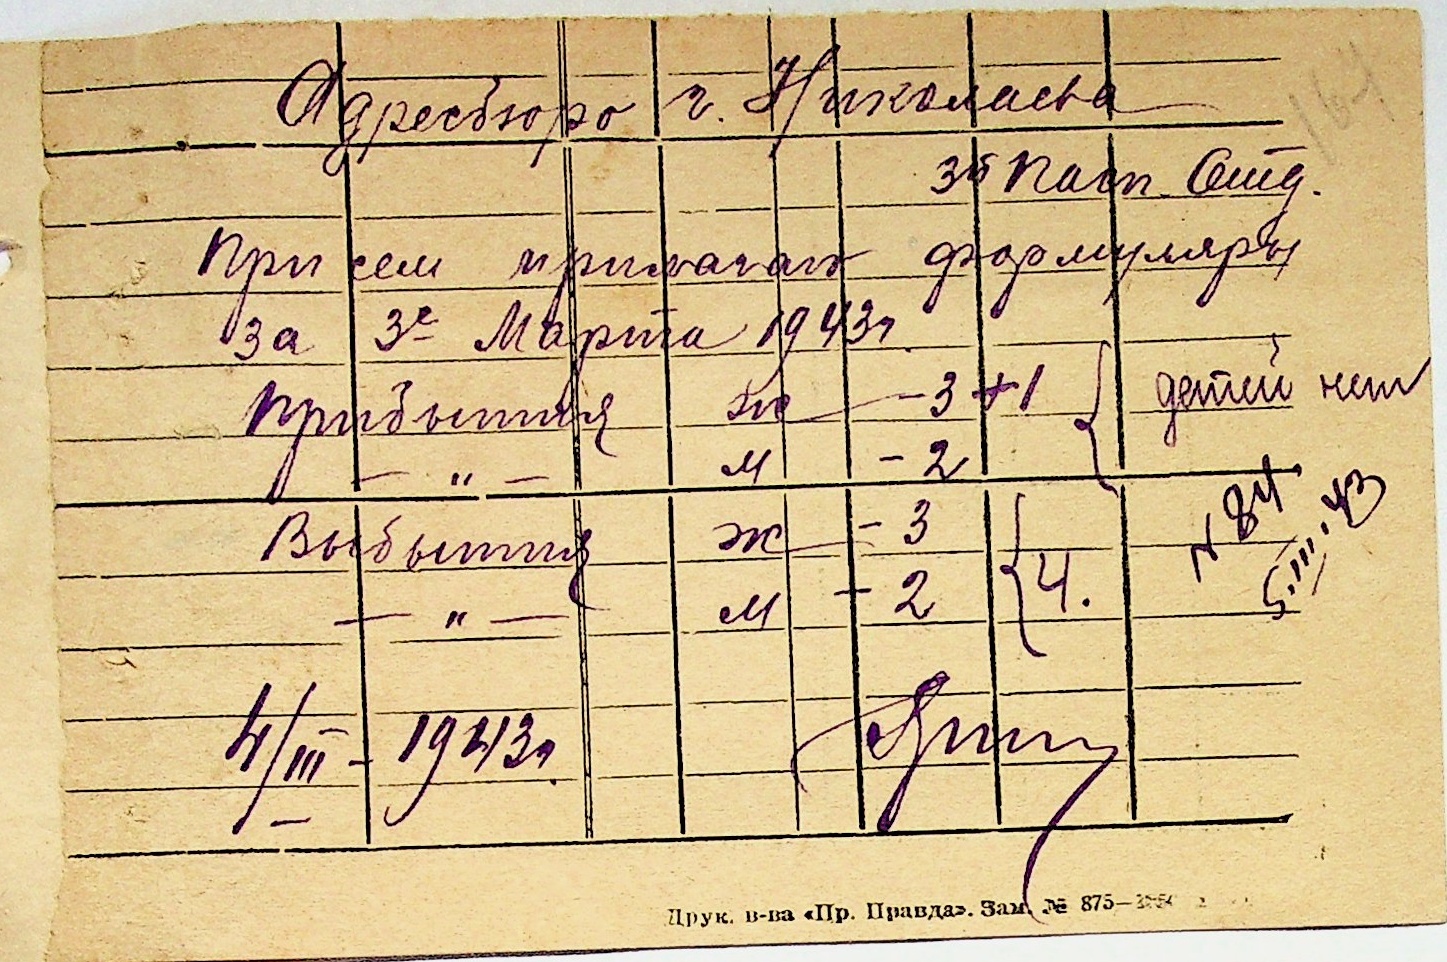 164
Адресбюро г. Николаева
3й Пасп. Отд.
При сем прилагаю формуляры
за 3е Марта 1943г.
Прибытия ж - 3 + 1 { детей нет
— " — м - 2
Выбытия ж - 3 { 4.
— " — м - 2
N 84
5.III.43
4/III - 1943г.
Друк. в-ва «Пр. Правда». Зам. № 875—